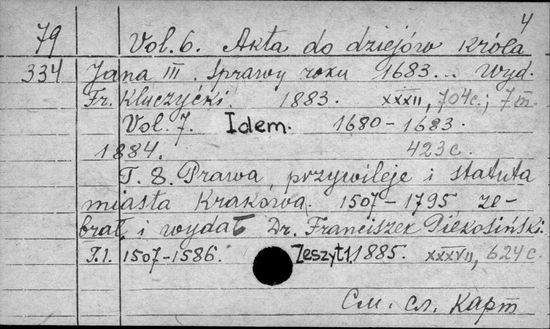 4
79 Vol. 6. Akta do dziejów króla
334 Jana III. Sprawy roku 1683... Wyd.
Fr. Kluczycki. 1883. XXXII, 704c.; 7 m.
Vol. 7. Idem. 1680-1683.
1884. 423 c.
T. 8. Prawa, przywileje i statuta
miasta Krakowa. 1507-1795 ze-
brał i wydał Dr. Franciszek Piekosiński.
T.1. 1507-1586. Zeszyt 1. 1885. XXXVII, 624 c.
См. сл. карт